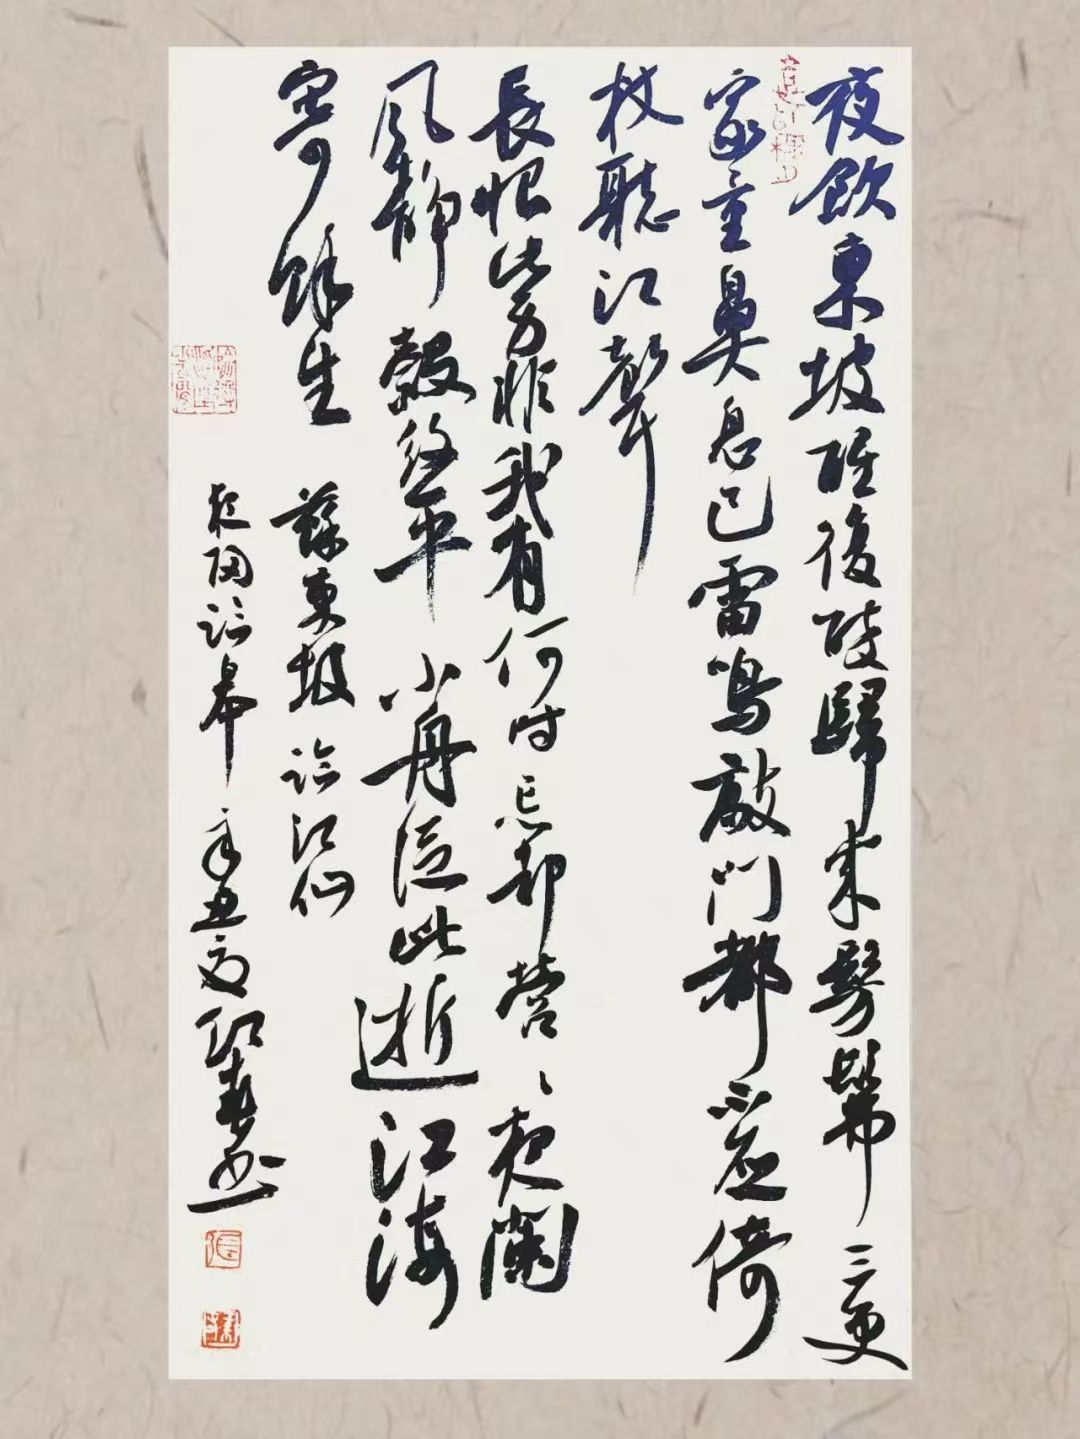 夜飲東坡醒復醉歸來髣髴三更
家童鼻息已雷鳴敲門都不應倚
杖聽江聲
長恨此身非我有何時忘却營〻夜闌
風靜縠紋平小舟從此逝江海
寄餘生
蘇東坡臨江仙
臨皋辛丑夏